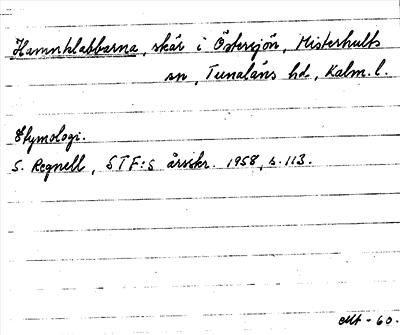 Hamnklabbarna, skär i Östersjön, Misterhults
sn, Tunaläns hd, Kalm. l.
Etymologi.
S. Regnell, STF:s årsskr. 1958, s. 113.
-60.